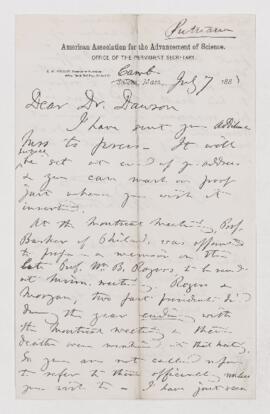 Putnam
American Association for the Advancement of Science.
OFFICE OF THE PERMANENT SECRETARY.
Camb.
Salem, Mass. July 7 188
Dear Dr. Dawson
I have sent you
to press. It will
be set at end of yr address
& you can mark on proof
just where you wish it
inserted.
At the Montreal Meeting, Prof.
Barker of Philad. was appointed
to prepare a memoir on the
late Prof. Wm B. Rogers, to be read
at Minn. meeting. Rogers &
Morgan, two past presidents died
during the year ending with
the Montreal meeting & their
deaths were mentioned at that meeting,
so you are not called upon
to refer to them officially, unless
you wish to - I have just seen